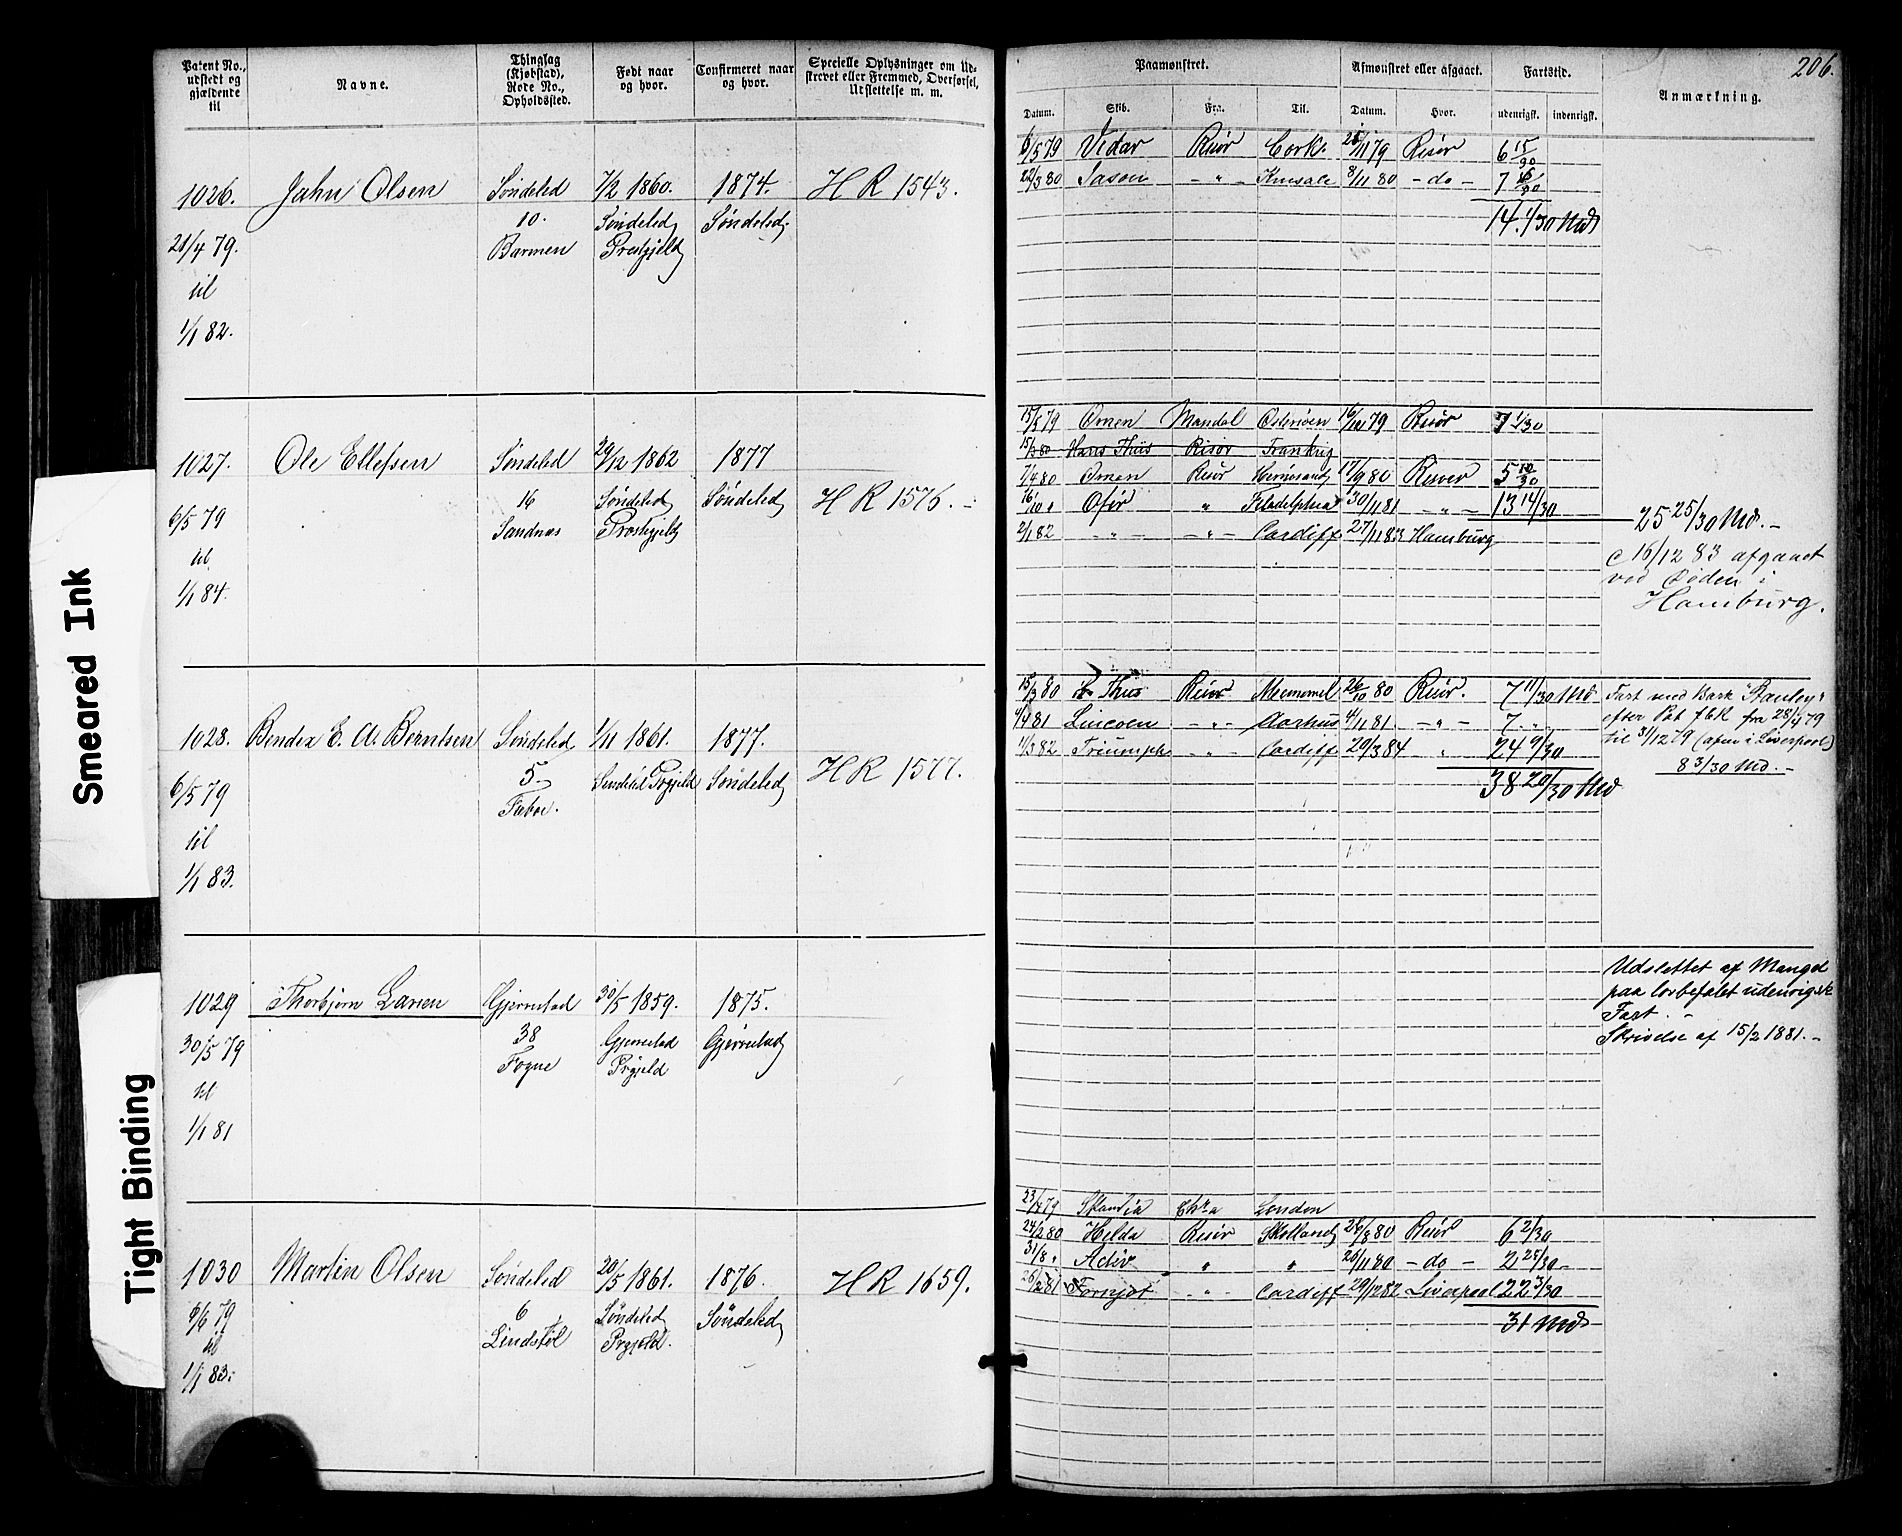 206.
Patent No., udstedt og gjældende til
Navne.
Thinglag (Kjøbstad), Rode No., Opholdssted.
Født naar og hvor.
Confirmeret naar og hvor.
Specielle Oplysninger om Udskrevet eller Fremmed, Overførsel, Udslettelse m. m.
Paamønstret.
Afmønstret eller afgaaet.
Fartstid.
Anmærkning.
Datum. Skib. Fra. Til. Datum. Hvor. udenrigsk. indenrigsk.
1026. Jahn Olsen Søndeled 7/2 1860. 1874. H R 1543.
10. Søndeled Søndeled
21/4 79. Barmen Prestgjeld
til
1/1 82.
6/5 79 Vedar Risør Cork. 79 Risør 6 15/30
22/3 80 Jason - " - Kinsale 8/11 80 - do - 7
14. 1/30 Md
1027. Ole Ellefsen Søndeled 29/12 1862 1877
16 Søndeled Søndeled H R 1576.-
6/5 79 Sandnæs Prestegjeld
til
1/1 84.
15/5 79 Ornen Mandal Østersøen 16/ 79 Risør 7 1/30
15/3 80 Hans Thiis Risør Frankrig
7/4 80 Ornen Risør Hernösand 17/9 80 Risør 5 10/30
16/10 " Ofir " Filadelphia 30/11 81 - " - 13 14/30
2/1 82 - " - - " - Cardiff 27/11 83 Hamburg
25 25/30 Md.-
16/12 83 afgaaet
ved Døden i
Hamburg.
1028. Bendix E. A. Berntsen Søndeled 1/11 1861. 1877.
5- Søndeled Prgjeld Søndeled H R 1577.
6/5 79
til
1/1 83.
15/3 80 H. Thiis Risør Memmel 26/10 80 Risør. 7 11/30 Md.
4/4 81 Lincoln - " - Aarhus 4/11 81 - " - 7 "
1/3 82 Triumph - " - Cardiff 29/3 84 " 24 9/30
38 20/30 Md
Fart med Bark "Stanley"
efter Pat 76R fra 28/4 79
til 31/12 79 (afm i Liverpool)
8 3/30 Md.-
1029 Thorbjørn Larsen Gjerrestad 30/5 1859. 1875.
38 Gjerrestad Gjerrestad
30/5 79 Fogne Prgjeld
til
1/1 81
Udslettet af Mangel
paa lovbefalet udenrigsk
Fart.-
Skrivelse af 15/2 1881.-
1030 Martin Olsen Søndeled 20/5 1861. 1876. H R 1659.
6 Søndeled Søndeled
6/6 79 Lindstøl Prgjeld.
til
1/1 83.
23/ 79 Skandia Chra London
24/2 80 Helda Risør Skotland 26/8 80 Risør 6 2/30
31/8 " Activ " " 26/11 80 - do - 2 25/30 -
26/2 81 Fornjot - " - Cardiff 29/12 82 Liverpool 22 3/30
31 Md -
Smeared Ink
Tight Binding